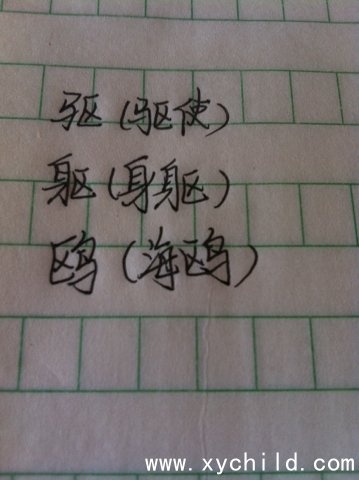 驱(驱使)
躯(身躯)
鸥(海鸥)
www.xychild.com